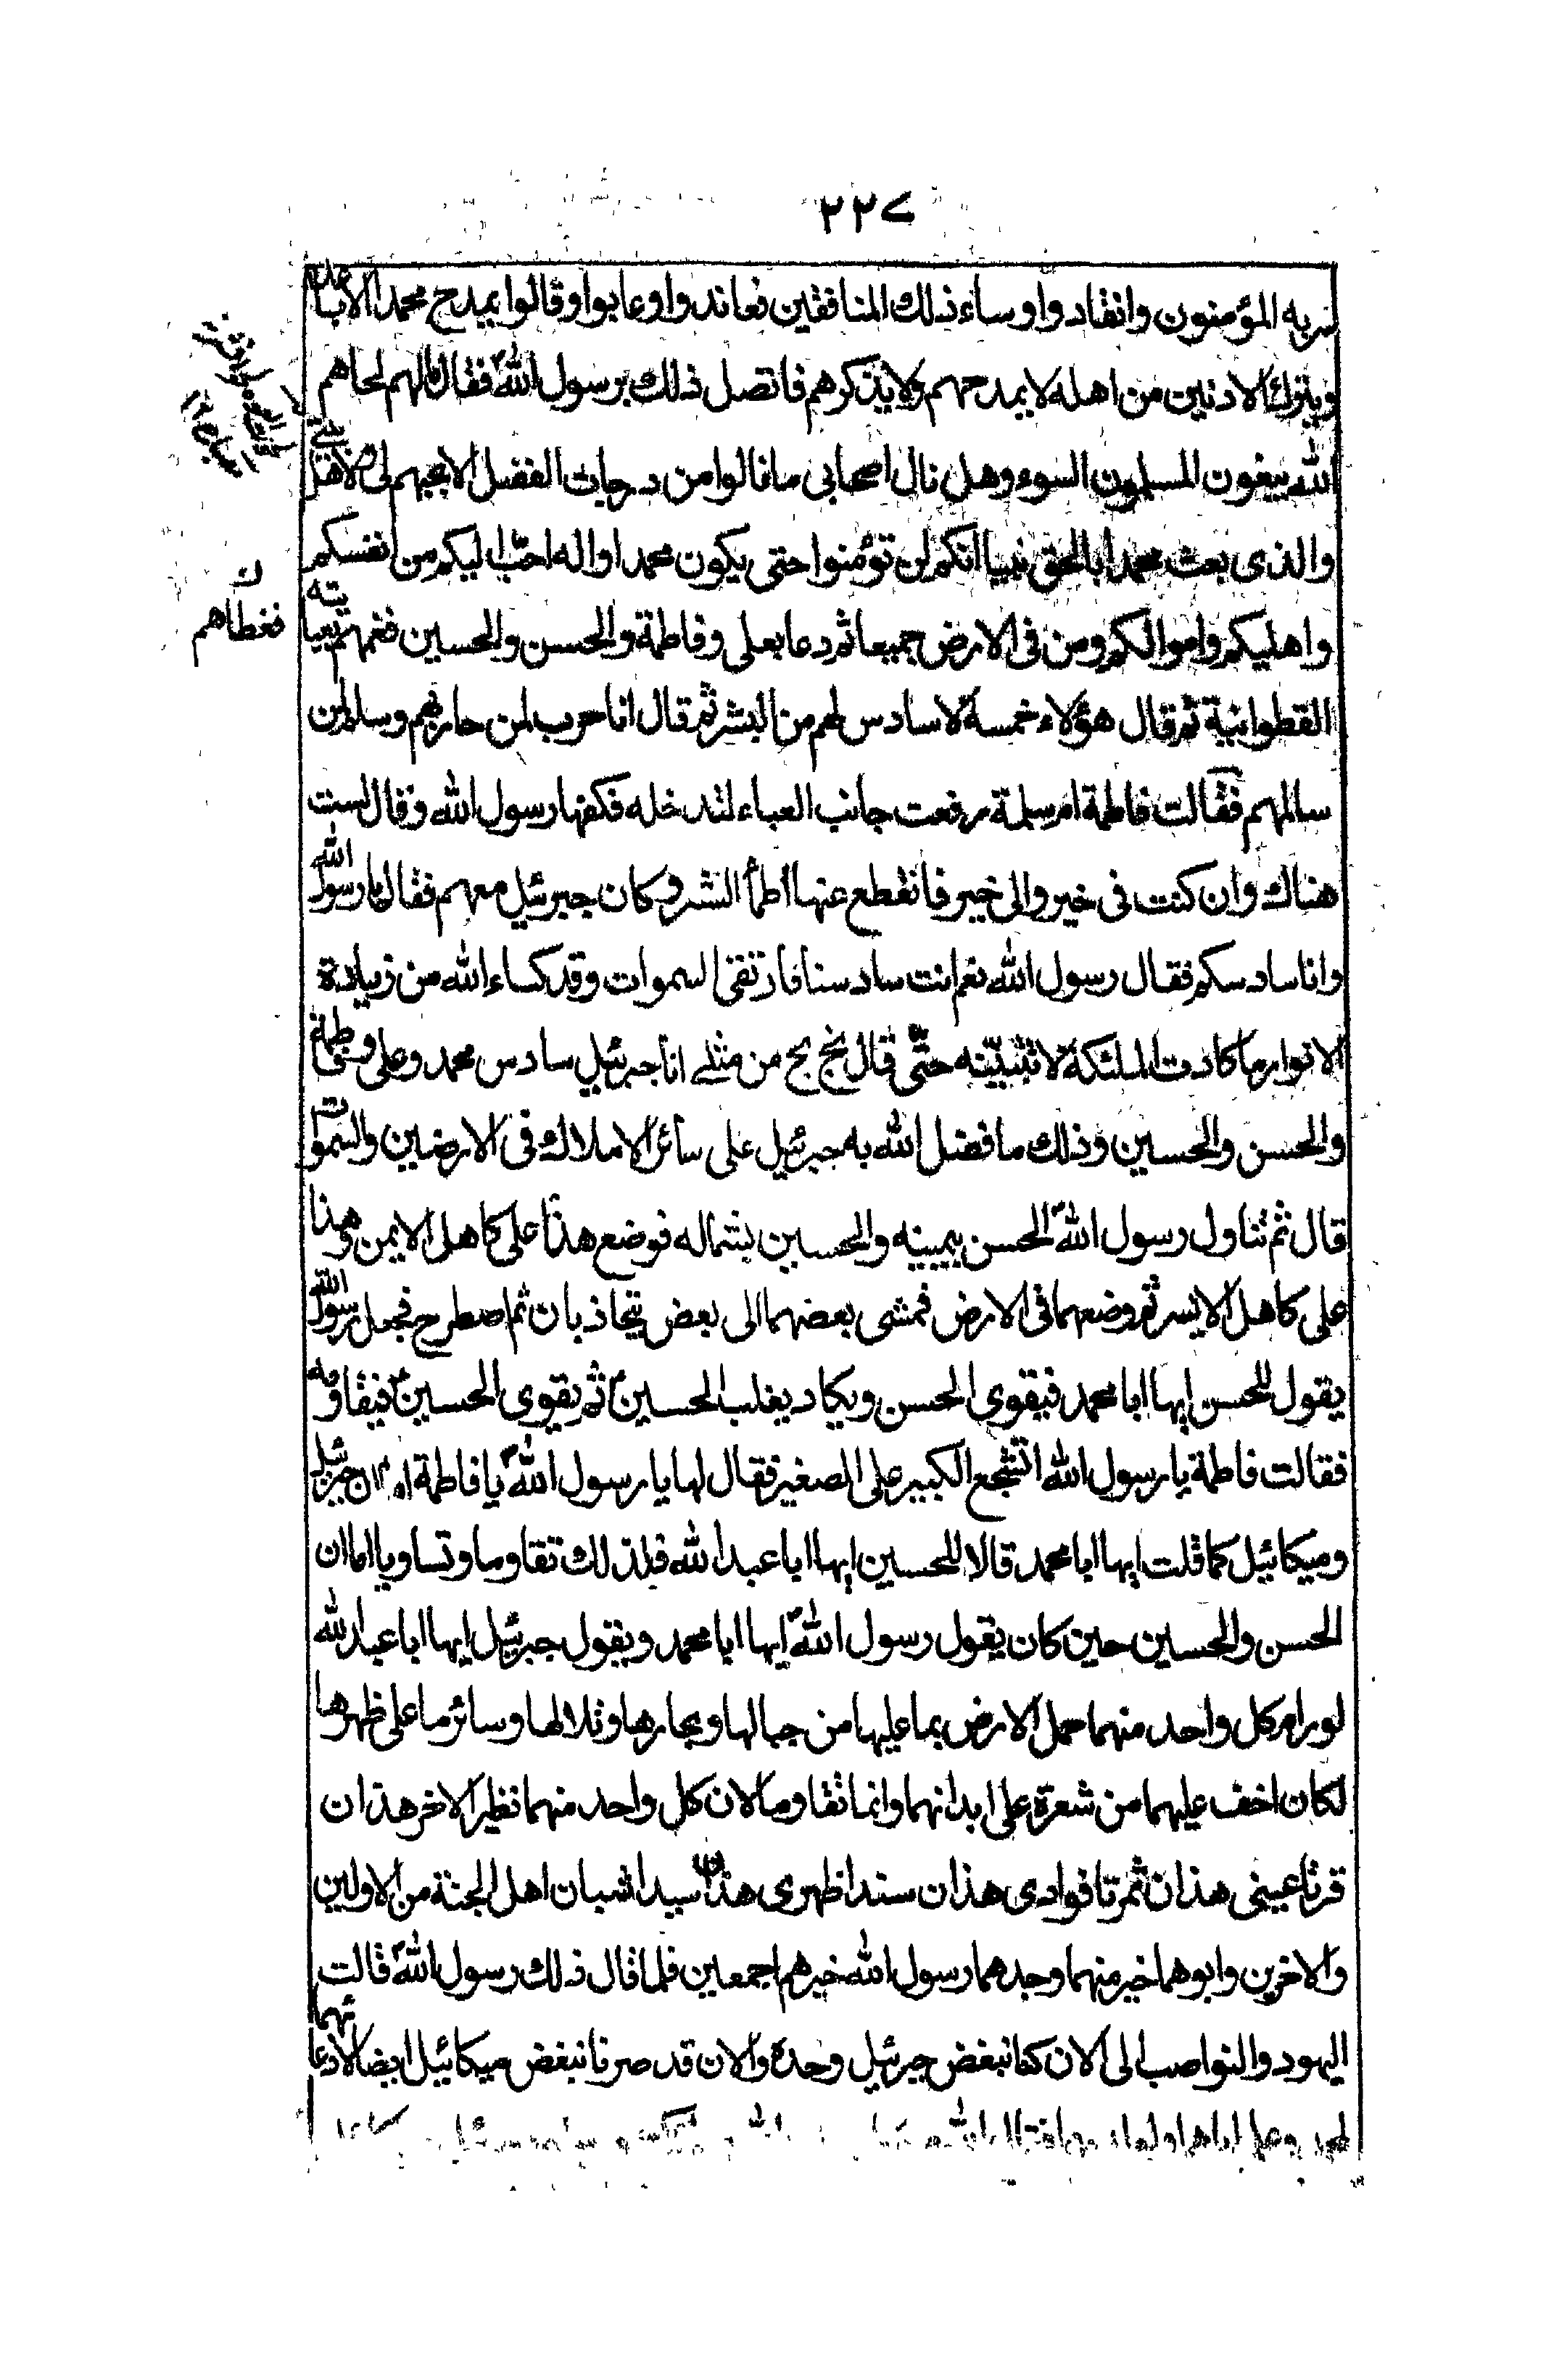 ٢٢٧
سر به المؤمنون وانقادوا وساء ذلك المنافقين فعاندوا وعابوا وقالوا يمدح محمد الاباعد
ويترك الادنين من اهله لا يمدحهم ولا يذكرهم فاتصل ذلك برسول الله فقال مالهم لحاهم
الله يبغون المسلمون السوء وهل نال اصحابي ما نالوا من درجات الفضل الا بحبهم لي
والذي بعث محمدا بالحق نبيا انكم لن تؤمنوا حتى يكون محمد اواله احب اليكم من انفسكم
واهليكم واموالكم ومن في الارض جميعا ثم دعا بعلي وفاطمة والحسن والحسين فغمهم بعبايته
فغطاهم
القطوانية ثم قال هؤلاء خمسة لا سادس لهم من البشر ثم قال انا حرب لمن حاربهم وسلم لمن
سالمهم فقالت فاطمة ام سلمة رفعت جانب العباء لتدخله فكفها رسول الله وقال لست
هناك وان كنت في خير والى خير فانقطع عنها البشر وكان جبرئيل معهم فقال يا رسول الله
وانا سادسكم فقال رسول الله نعم انت سادسنا فارتقى السموات وقد كساء الله من زيادة
الانوار ما كادت الملئكة لا تثبيته حتى قال بخ بخ من مثلي انا جبرئيل سادس محمد وعلي وفاطمة
والحسن والحسين وذلك ما فضل الله به جبرئيل على سائر الاملاك في الارضين والسموات
قال ثم تناول رسول الله الحسن بيمينه والحسين بشماله فوضع هذا على كاهل الايمن وهذا
على كاهل الايسر ثم وضعهما في الارض فمشى بعضهما الى بعض يتجاذبان ثم اصطرح فجعل رسول الله
يقول للحسن ايها ابا محمد فيقوى الحسن ويكاد يغلب الحسين ثم يقوى الحسين فيقاومه
فقالت فاطمة يا رسول الله اتشجع الكبير على الصغير فقال لها يا رسول الله يا فاطمة اما ان جبرئيل
وميكائيل كما قلت ايها ابا محمد قالا للحسين ايها ابا عبد الله فلذلك تقاوما وتساويا اما ان
الحسن والحسين حين كان يقول رسول الله ايها ابا محمد ويقول جبرئيل ايها ابا عبد الله
لو رام كل واحد منهما حمل الارض بما عليها من جبالها وبحارها وتلالها وسائر ما على ظهرها
لكان اخف عليهما من شعرة على ابدانهما وانما تقاوما لان كل واحد منهما نظير الاخر هذان
قرتا عيني هذان ثمرتا فوادي هذان سندا ظهري هذان سيدا شبان اهل الجنة من الاولين
والاخرين وابوهما خير منهما وجدهما رسول الله خيرهم اجمعين فلما قال ذلك رسول الله قالت
اليهود والنواصب الى الان كنا نبغض جبرئيل وحده والان قد صرنا نبغض ميكائيل ايضا لادعائهما
لمحمد وعلي اياهما